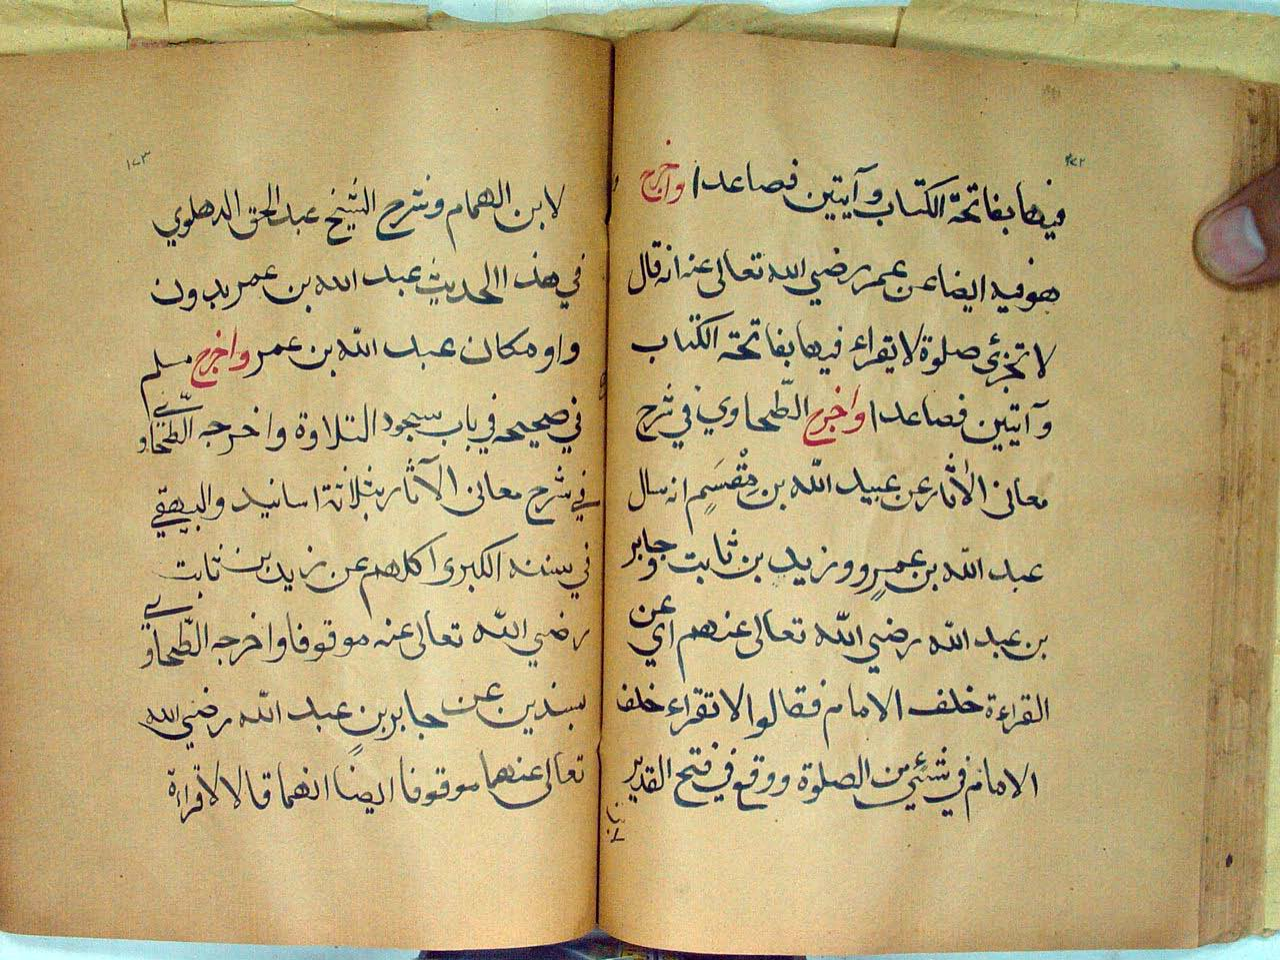 ١٧٢
فيها بفاتحة الكتاب وآيتين فصاعدا واخرج
هو فيه ايضا عن عمر رضي الله تعالى عنه انه قال
لا تجزئ صلوة لا يقراء فيها بفاتحة الكتاب
وآيتين فصاعدا واخرج الطّحاوي في شرح
معاني الاٰثار عن عبيد الله بن مِقْسَمٍ انه سال
عبد الله بن عمرٍو و زيد بن ثابت وجابر
بن عبد الله رضي الله تعالى عنهم اي عن
القراءة خلف الامام فقالوا لا تقراء خلف
الامام في شيءٍ من الصلوة ووقع في فتح القدير
لابن
١٧٣
لابن الهمام وشرح الشيخ عبد الحق الدهلوي
في هذا الحديث عبد الله بن عمر بدون
واو مكان عبد الله بن عمر واخرج مسلم
في صحيحه في باب سجود التلاوة واخرجه الطّحاوي
في شرح معاني الآثار بثلاثة اسانيد والبيهقي
في سننه الكبرى كلهم عن زيد بن ثابت
رضي الله تعالى عنه موقوفا واخرجه الطّحاوي
بسندين عن جابر بنِ عبد الله رضي الله
تعالى عنهما موقوفا ايضا انهما قالا لا قراءة